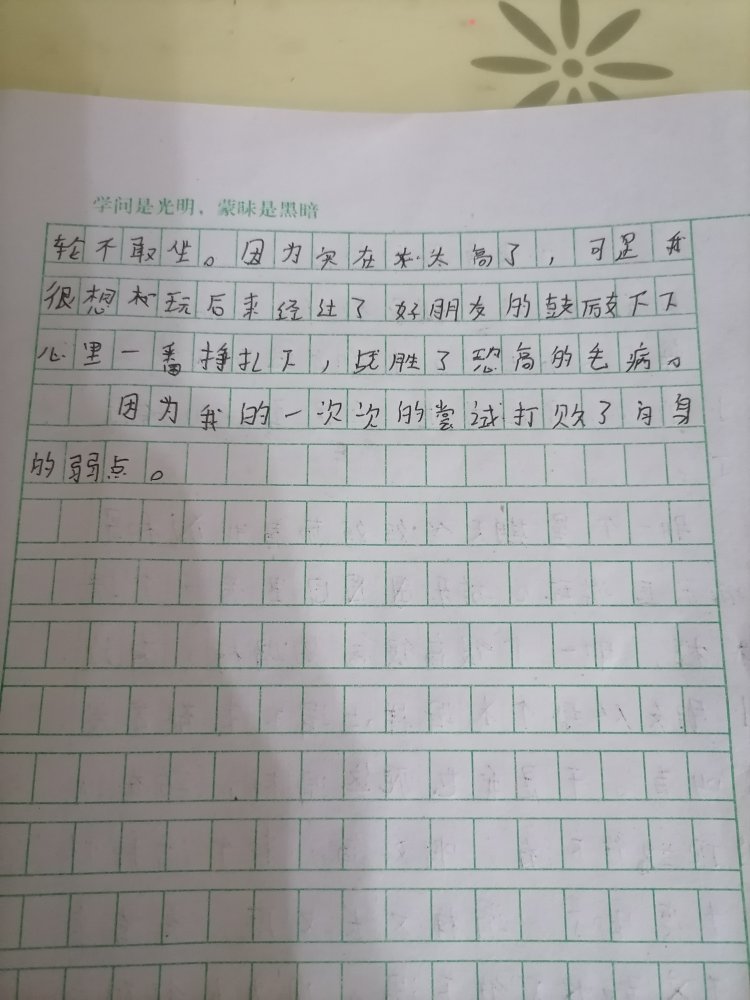 学问是光明，蒙昧是黑暗
轮不敢坐。因为实在太高了，可是我
很想玩后来经过了好朋友的鼓励下下
心里一番挣扎下，战胜了恐高的毛病。
因为我的一次次的尝试打败了自身
的弱点。